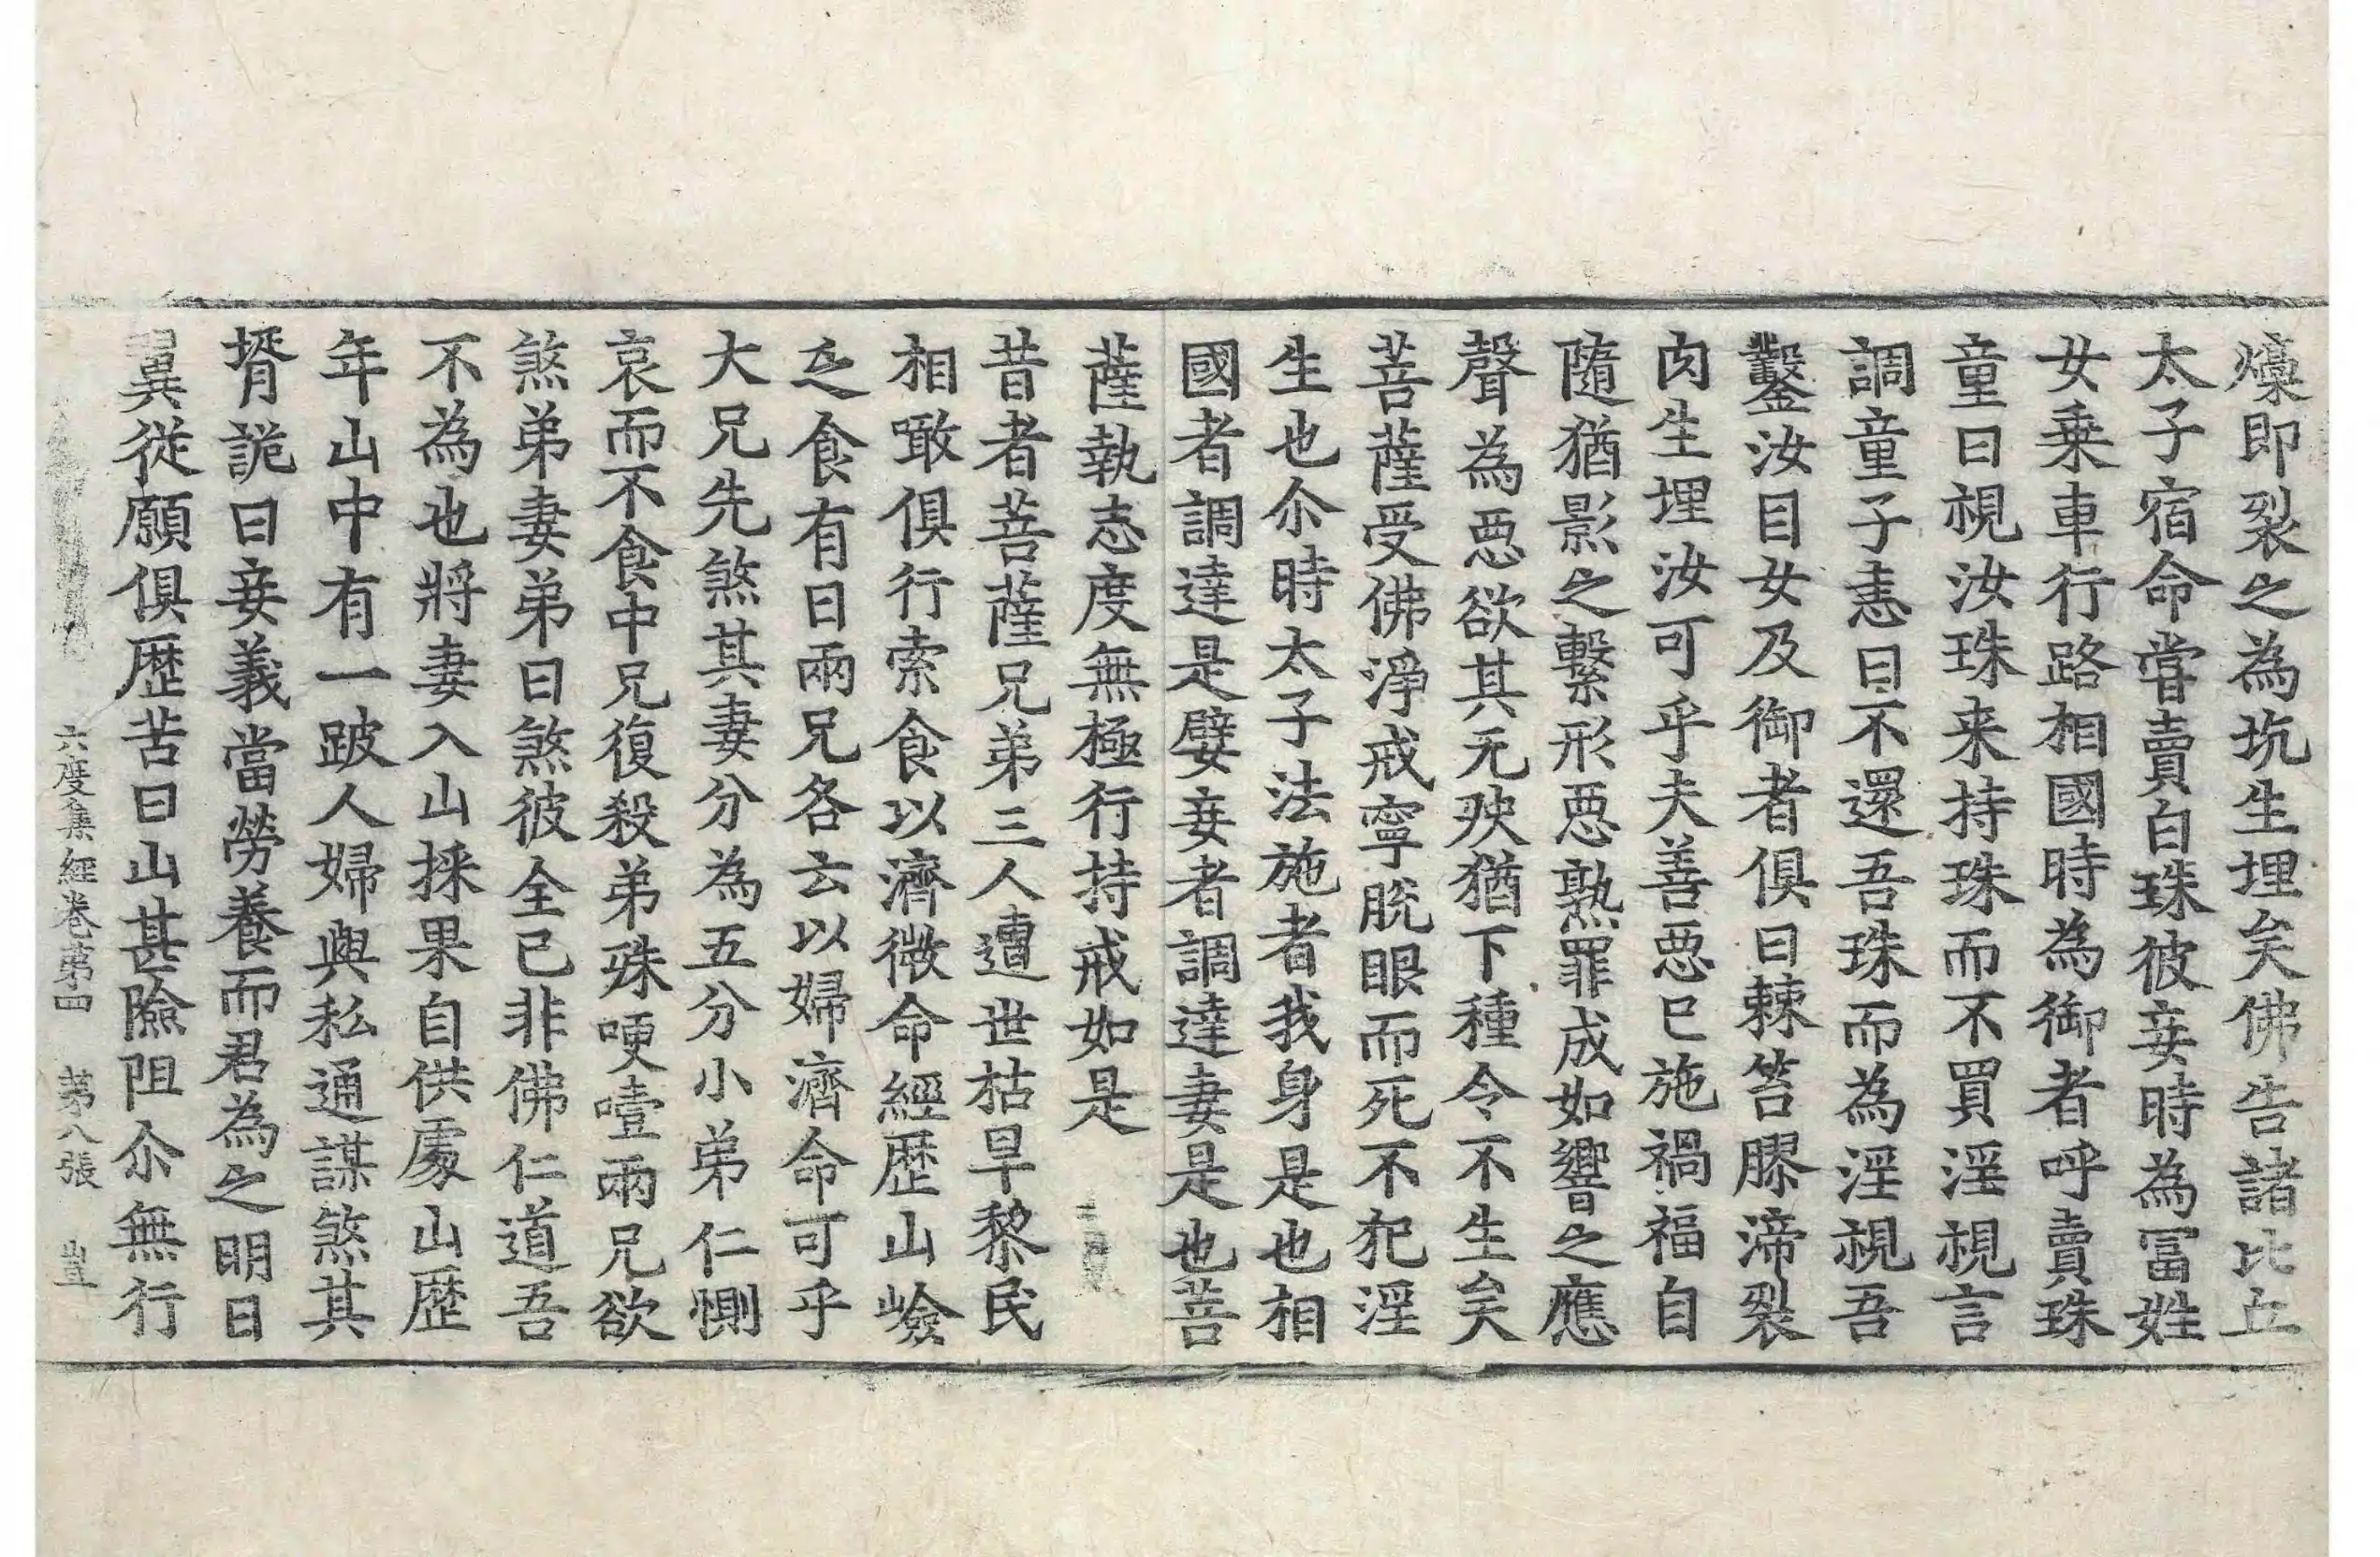 燺即裂之為坑生埋矣佛告諸比丘
太子宿命甞賣白珠彼妾時為冨姓
女乗車行路相國時為御者呼賣珠
童曰視汝珠来持珠而不買淫視言
調童子恚曰不還吾珠而為淫視吾
鑿汝目女及御者俱曰棘笞膠渧裂
肉生埋汝可乎夫善惡已施禍福自
隨猶影之繫形惡熟罪成如響之應
聲為惡欲其无殃猶下種令不生矣
菩薩受佛淨戒寧脫眼而死不犯淫
生也尒時太子法施者我身是也相
國者調達是嬖妾者調達妻是也菩
薩執志度無極行持戒如是
昔者菩薩兄弟三人遭世枯旱黎民
相噉俱行索食以濟微命經歷山嶮
乏食有日兩兄各云以婦濟命可乎
大兄先煞其妻分為五分小弟仁惻
哀而不食中兄復殺弟殊哽噎兩兄欲
煞弟妻弟曰煞彼全已非佛仁道吾
不為也將妻入山採果自供處山歷
年山中有一跛人婦與私通謀煞其
壻詭曰妾義當勞養而君為之明日
翼從願俱歷苦曰山甚險阻尒無行
六度集經卷第四 第八張